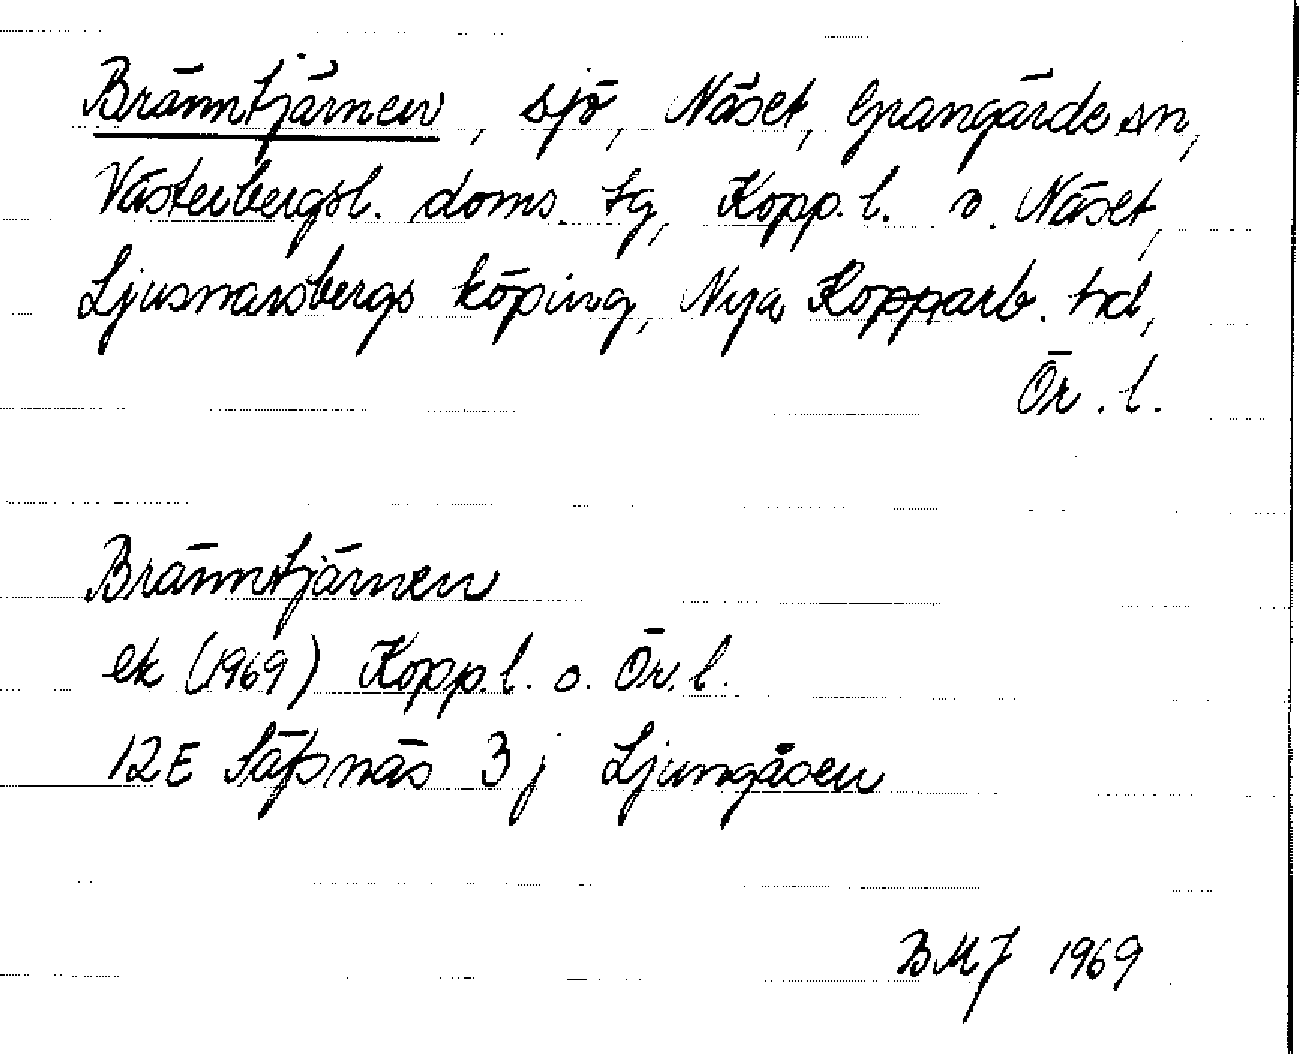 Bränntjärnen, sjö, Näset, Grangärde sn,
Västerbergsl. doms. tg, Kopp. l. o. Näset,
Ljusnarsbergs köping, Nya Kopparb. hd,
Ör. l.
Bränntjärnen
ek (1969) Kopp. l. o. Ör. l.
12E Säfsnäs 3j Ljungåsen
BMJ 1969